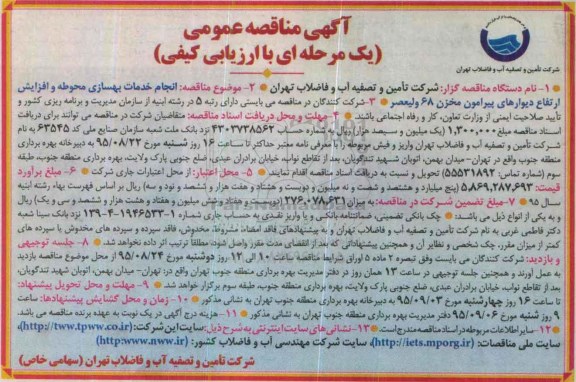 آگهی مناقصه عمومی
(یک مرحله ای با ارزیابی کیفی)
شرکت تأمین و تصفیه آب و فاضلاب تهران
۱- نام دستگاه مناقصه گزار: شرکت تأمین و تصفیه آب و فاضلاب تهران ۲- موضوع مناقصه: انجام خدمات بهسازی محوطه و افزایش
ارتفاع دیوارهای پیرامون مخزن ۶۸ ولیعصر ۳-شرکت کنندگان در مناقصه می بایستی دارای رتبه ۵ در رشته ابنیه از سازمان مدیریت و برنامه ریزی کشور و
تأیید صلاحیت ایمنی از وزارت تعاون، کار و رفاه اجتماعی باشند ۴- مهلت و محل دریافت اسناد مناقصه: متقاضیان شرکت در مناقصه می توانند برای دریافت
اسناد مناقصه مبلغ ۱,۳۰۰,۰۰۰ (یک میلیون و سیصد هزار) ریال به شماره حساب ۴۳۰۷۳۳۸۵۶۲ نزد بانک ملت شعبه سازمان صنایع ملی کد ۶۳۵۴۵ به نام
شرکت تأمین و تصفیه آب و فاضلاب تهران واریز و فیش مربوطه را با معرفی نامه معتبر حداکثر تا ساعت ۱۶ روز شنبه مورخ ۹۵/۰۸/۲۲ به دبیرخانه بهره برداری
منطقه جنوب واقع در تهران-میدان بهمن، اتوبان شهید تندگویان، بعد از تقاطع نواب، خیابان برادران عبدی، ضلع جنوبی پارک ولایت، بهره برداری منطقه جنوب، طبقه
سوم (شماره تماس: ۵۵۵۳۱۸۹۲) تحویل و نسبت به دریافت اسناد مناقصه اقدام نمایند ۵- محل اعتبار: از محل اعتبارات جاری شرکت ۶- مبلغ برآورد
قیمت: ۵,۸۶۹,۲۸۷,۶۹۳ (پنج میلیارد و هشتصد و شصت و نه میلیون و دویست و هشتاد و هفت هزار و ششصد و نود و سه) ریال بر اساس فهرست بهاء رشته ابنیه
سال ۹۵ ۷- مبلغ تضمین شرکت در مناقصه: به میزان ۲۷۶,۰۷۸,۶۳۱ (دویست و هفتاد و شش میلیون و هفتاد و هشت هزار و ششصد و سی و یک) ریال
و به یکی از انواع ذیل می باشد: چک بانکی تضمینی، ضمانتنامه بانکی و یا واریز نقدی به حساب جاری شماره ۱-۱۹۴۶۵۳۳-۴-۱۳۹ نزد بانک سینا شعبه
دکتر فاطمی غربی به نام شرکت تأمین و تصفیه آب و فاضلاب تهران و به پیشنهادهای فاقد امضاء، مشروط، مخدوش، فاقد سپرده و سپرده های مخدوش یا سپرده های
کمتر از میزان مقرر، چک شخصی و نظایر آن و همچنین پیشنهاداتی که بعد از انقضای مدت مقرر واصل شود، مطلقا ترتیب اثر داده نخواهد شد. ۸- جلسه توجیهی
و بازدید: شرکت کنندگان می بایست وفق تبصره ۲ ماده ۵ اوراق شرایط مناقصه ساعت ۱۰ الی ۱۲ روز دوشنبه مورخ ۹۵/۰۸/۲۴ از محل موضوع مناقصه بازدید
به عمل آورند و همچنین جلسه توجیهی در ساعت ۱۳ همان روز در دفتر مدیریت بهره برداری منطقه جنوب تهران واقع در: تهران- میدان بهمن، اتوبان شهید تندگویان،
بعد از تقاطع نواب، خیابان برادران عبدی، ضلع جنوبی پارک ولایت، بهره برداری منطقه جنوب، طبقه سوم برگزار خواهد شد. ۹- مهلت و محل تحویل پیشنهاد:
تا ساعت ۱۶ روز چهارشنبه مورخ ۹۵/۰۹/۰۳ به دبیرخانه بهره برداری منطقه جنوب تهران به نشانی مذکور ۱۰- زمان و محل گشایش پیشنهادها: ساعت
۹ روز شنبه مورخ ۹۵/۰۹/۰۶ دفتر مدیریت بهره برداری منطقه جنوب تهران به نشانی مذکور ۱۱- هزینه درج آگهی در یک نوبت به عهده برنده مناقصه می باشد.
۱۲-سایر اطلاعات مربوطه در اسناد مناقصه مندرج است. ۱۳- نشانی های سایت اینترنتی به شرح ذیل: سایت این شرکت: (http://tww.tpww.co.ir)،
سایت ملی مناقصات: (http://iets.mporg.ir)، سایت شرکت مهندسی آب و فاضلاب کشور: (http:www.nww.ir)
شرکت تأمین و تصفیه آب و فاضلاب تهران (سهامی خاص)